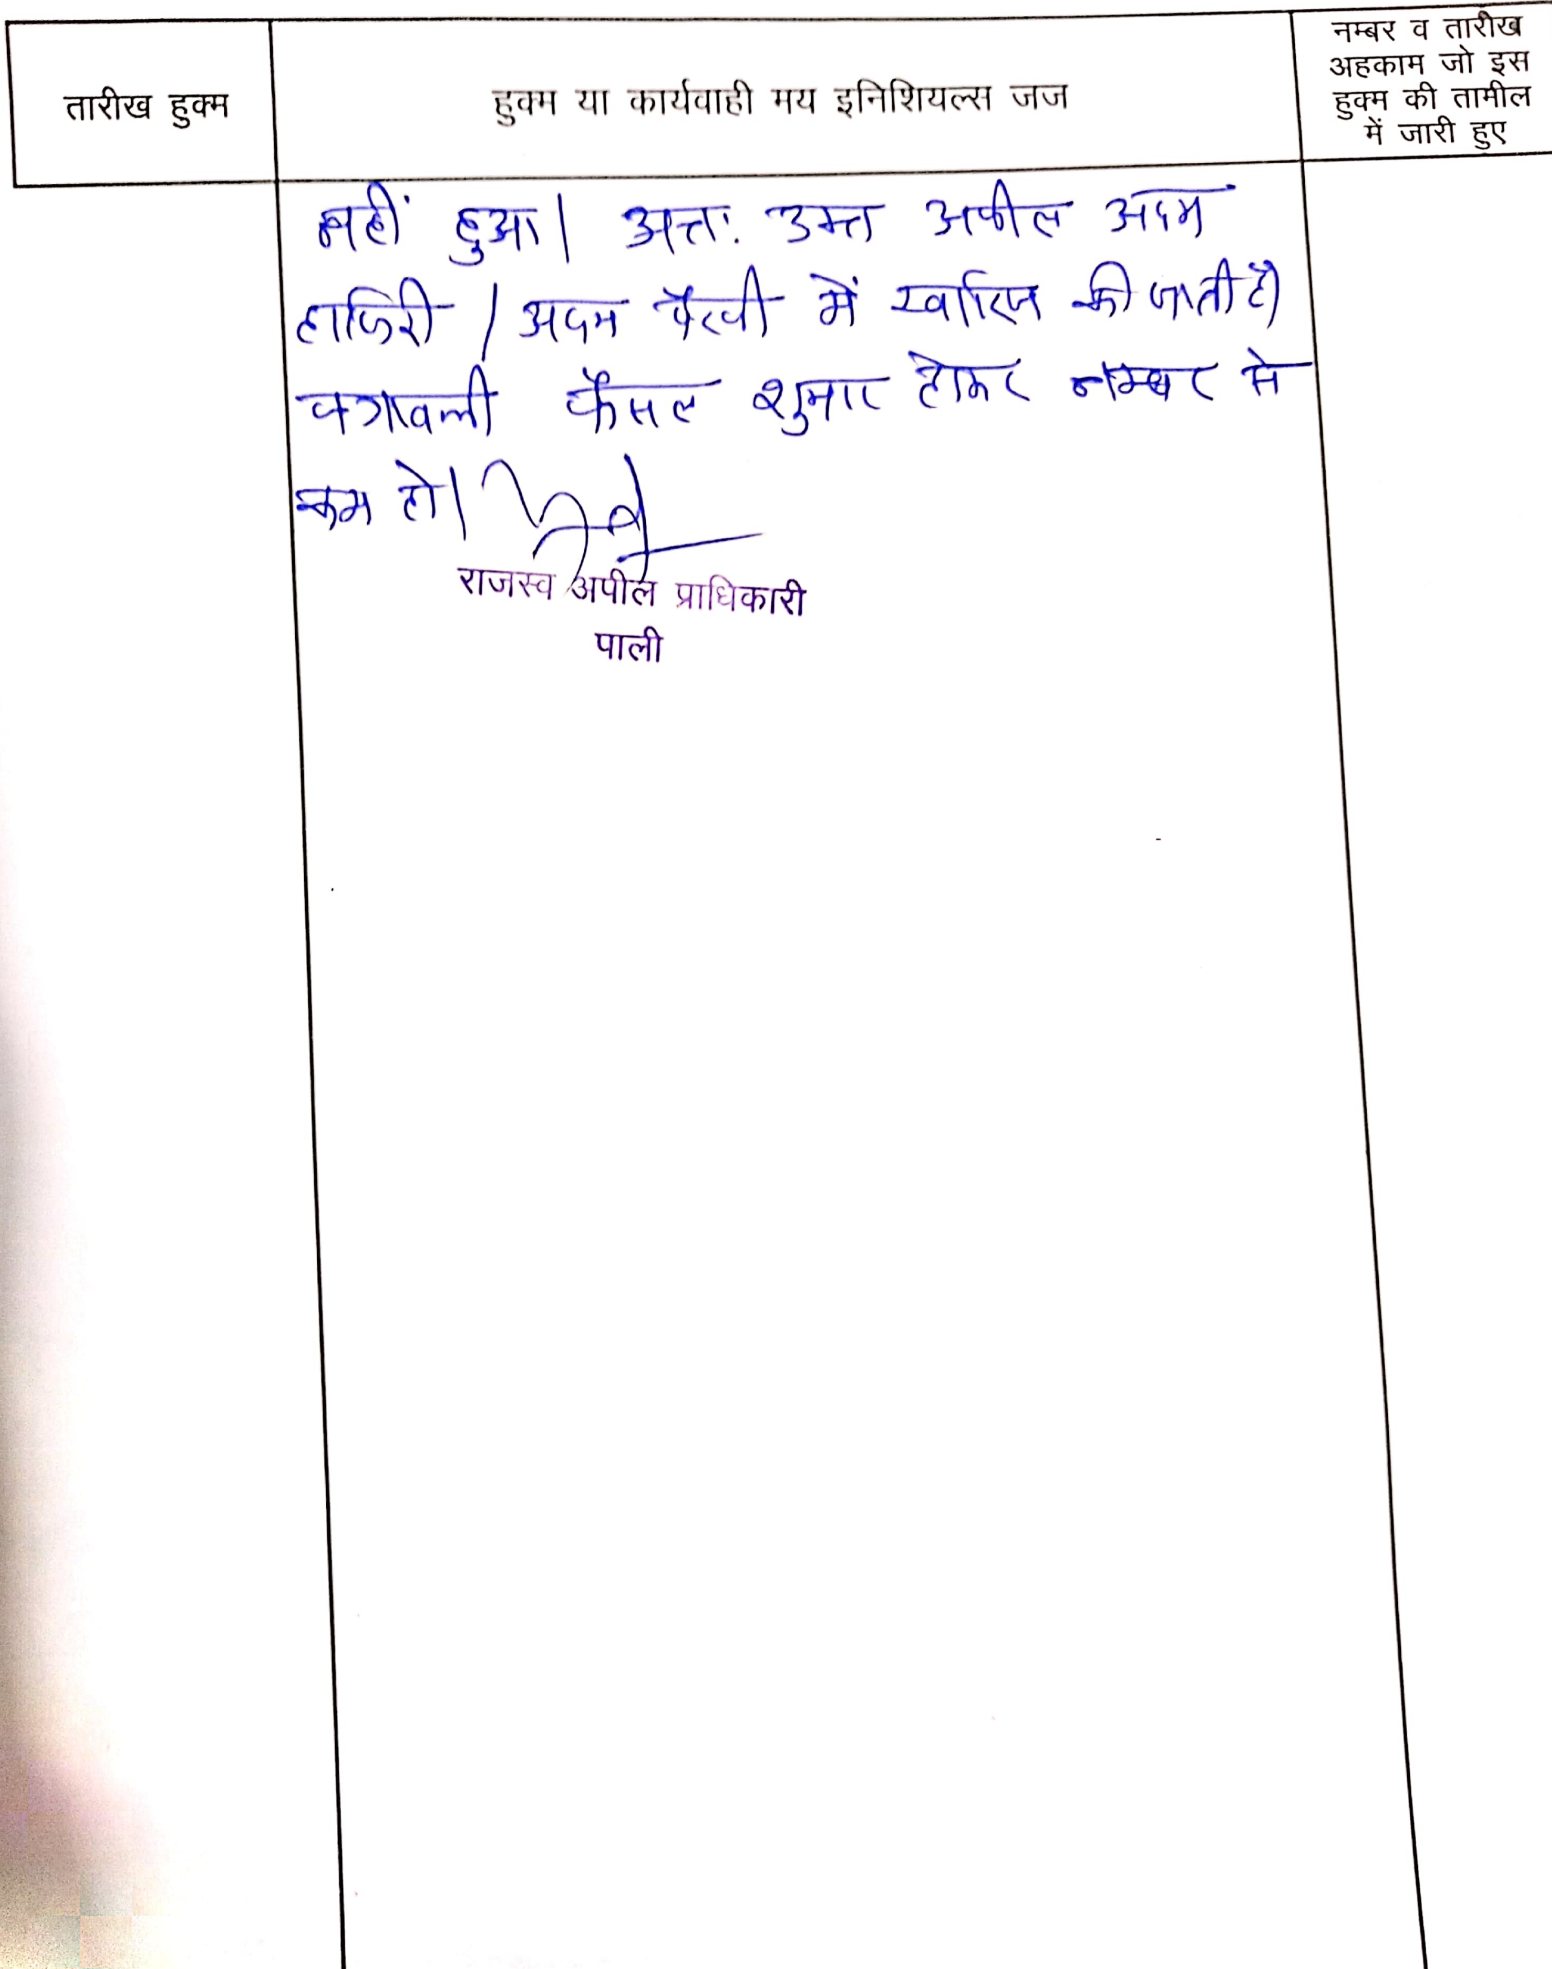 तारीख हुक्म
हुक्म या कार्यवाही मय इनिशियल्स जज
नम्बर व तारीख
अहकाम जो इस
हुक्म की तामील
में जारी हुए
नहीं हुआ। अतः उक्त अपील अदम
हाजिरी / अदम पैरवी में खारिज की जाती है।
पत्रावली फैसल शुमार होकर नम्बर से
कम हो।
राजस्व अपील प्राधिकारी
पाली